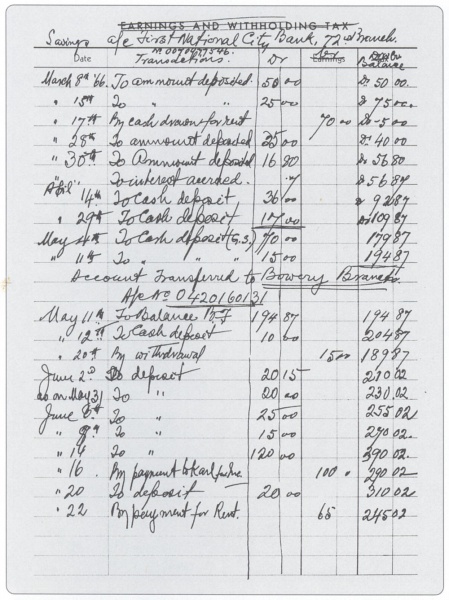 EARNINGS AND WITHHOLDING TAX
Savings a/c First National City Bank, 72nd Branch.
Date Transactions. Dr Cr Earnings Balance
March 8th '66. To ammount deposited. 50 00 Dr 50 00
" 15th To " " 25 00 Dr 75 00
" 17th By cash drawn for rent 70 00 Dr 5 00
" 28th To ammount deposited 35 00 Dr 40 00
" 30th To Ammount deposited 16 80 Dr 56 80
" To interest accrued. .7 Dr 56 87
April 14th To Cash deposit, 36 00 Dr 92 87
" 29th To Cash deposit 17 00 Dr 109 87
May 4th To Cash deposit (G.S.) 70 00 179 87
" 11th To " " 15 00 194 87
Account Transferred to Bowery Branch.
A/c No 0420160131
May 11th To Balance B.F 194 87 194 87
" 12th To Cash deposit 10 00 204 87
" 20th By withdrawal 15 00 189 87
June 2nd To deposit 20 15 210 02
as on May 31 To " 20 00 230 02
June 6th To " 25 00 255 02
" 8th To " 15 00 270 02
" 14 To " 120 00 390 02
" 16 By payment to Karl 100 " 290 02
" 20 To deposit 20 00 310 02
" 22 By payment for Rent. 65 245 02